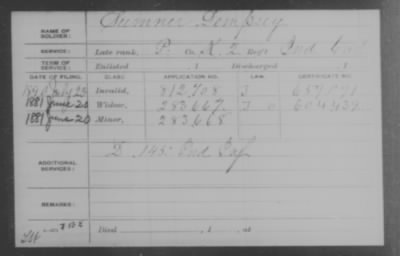 NAME OF SOLDIER: Sumner Dempsey
SERVICE: Late rank, P. Co. K, 2 Reg't Ind Cav
TERM OF SERVICE: Enlisted , 1 Discharged , 1
DATE OF FILING. CLASS. APPLICATION NO. LAW. CERTIFICATE NO.
July 22 Invalid, 812,708 J
1881 June 20 Widow, 283,667 J
1881 June 20 Minor, 283,668
ADDITIONAL SERVICES: D 148" Ind Inf
REMARKS:
Died , 1 , at